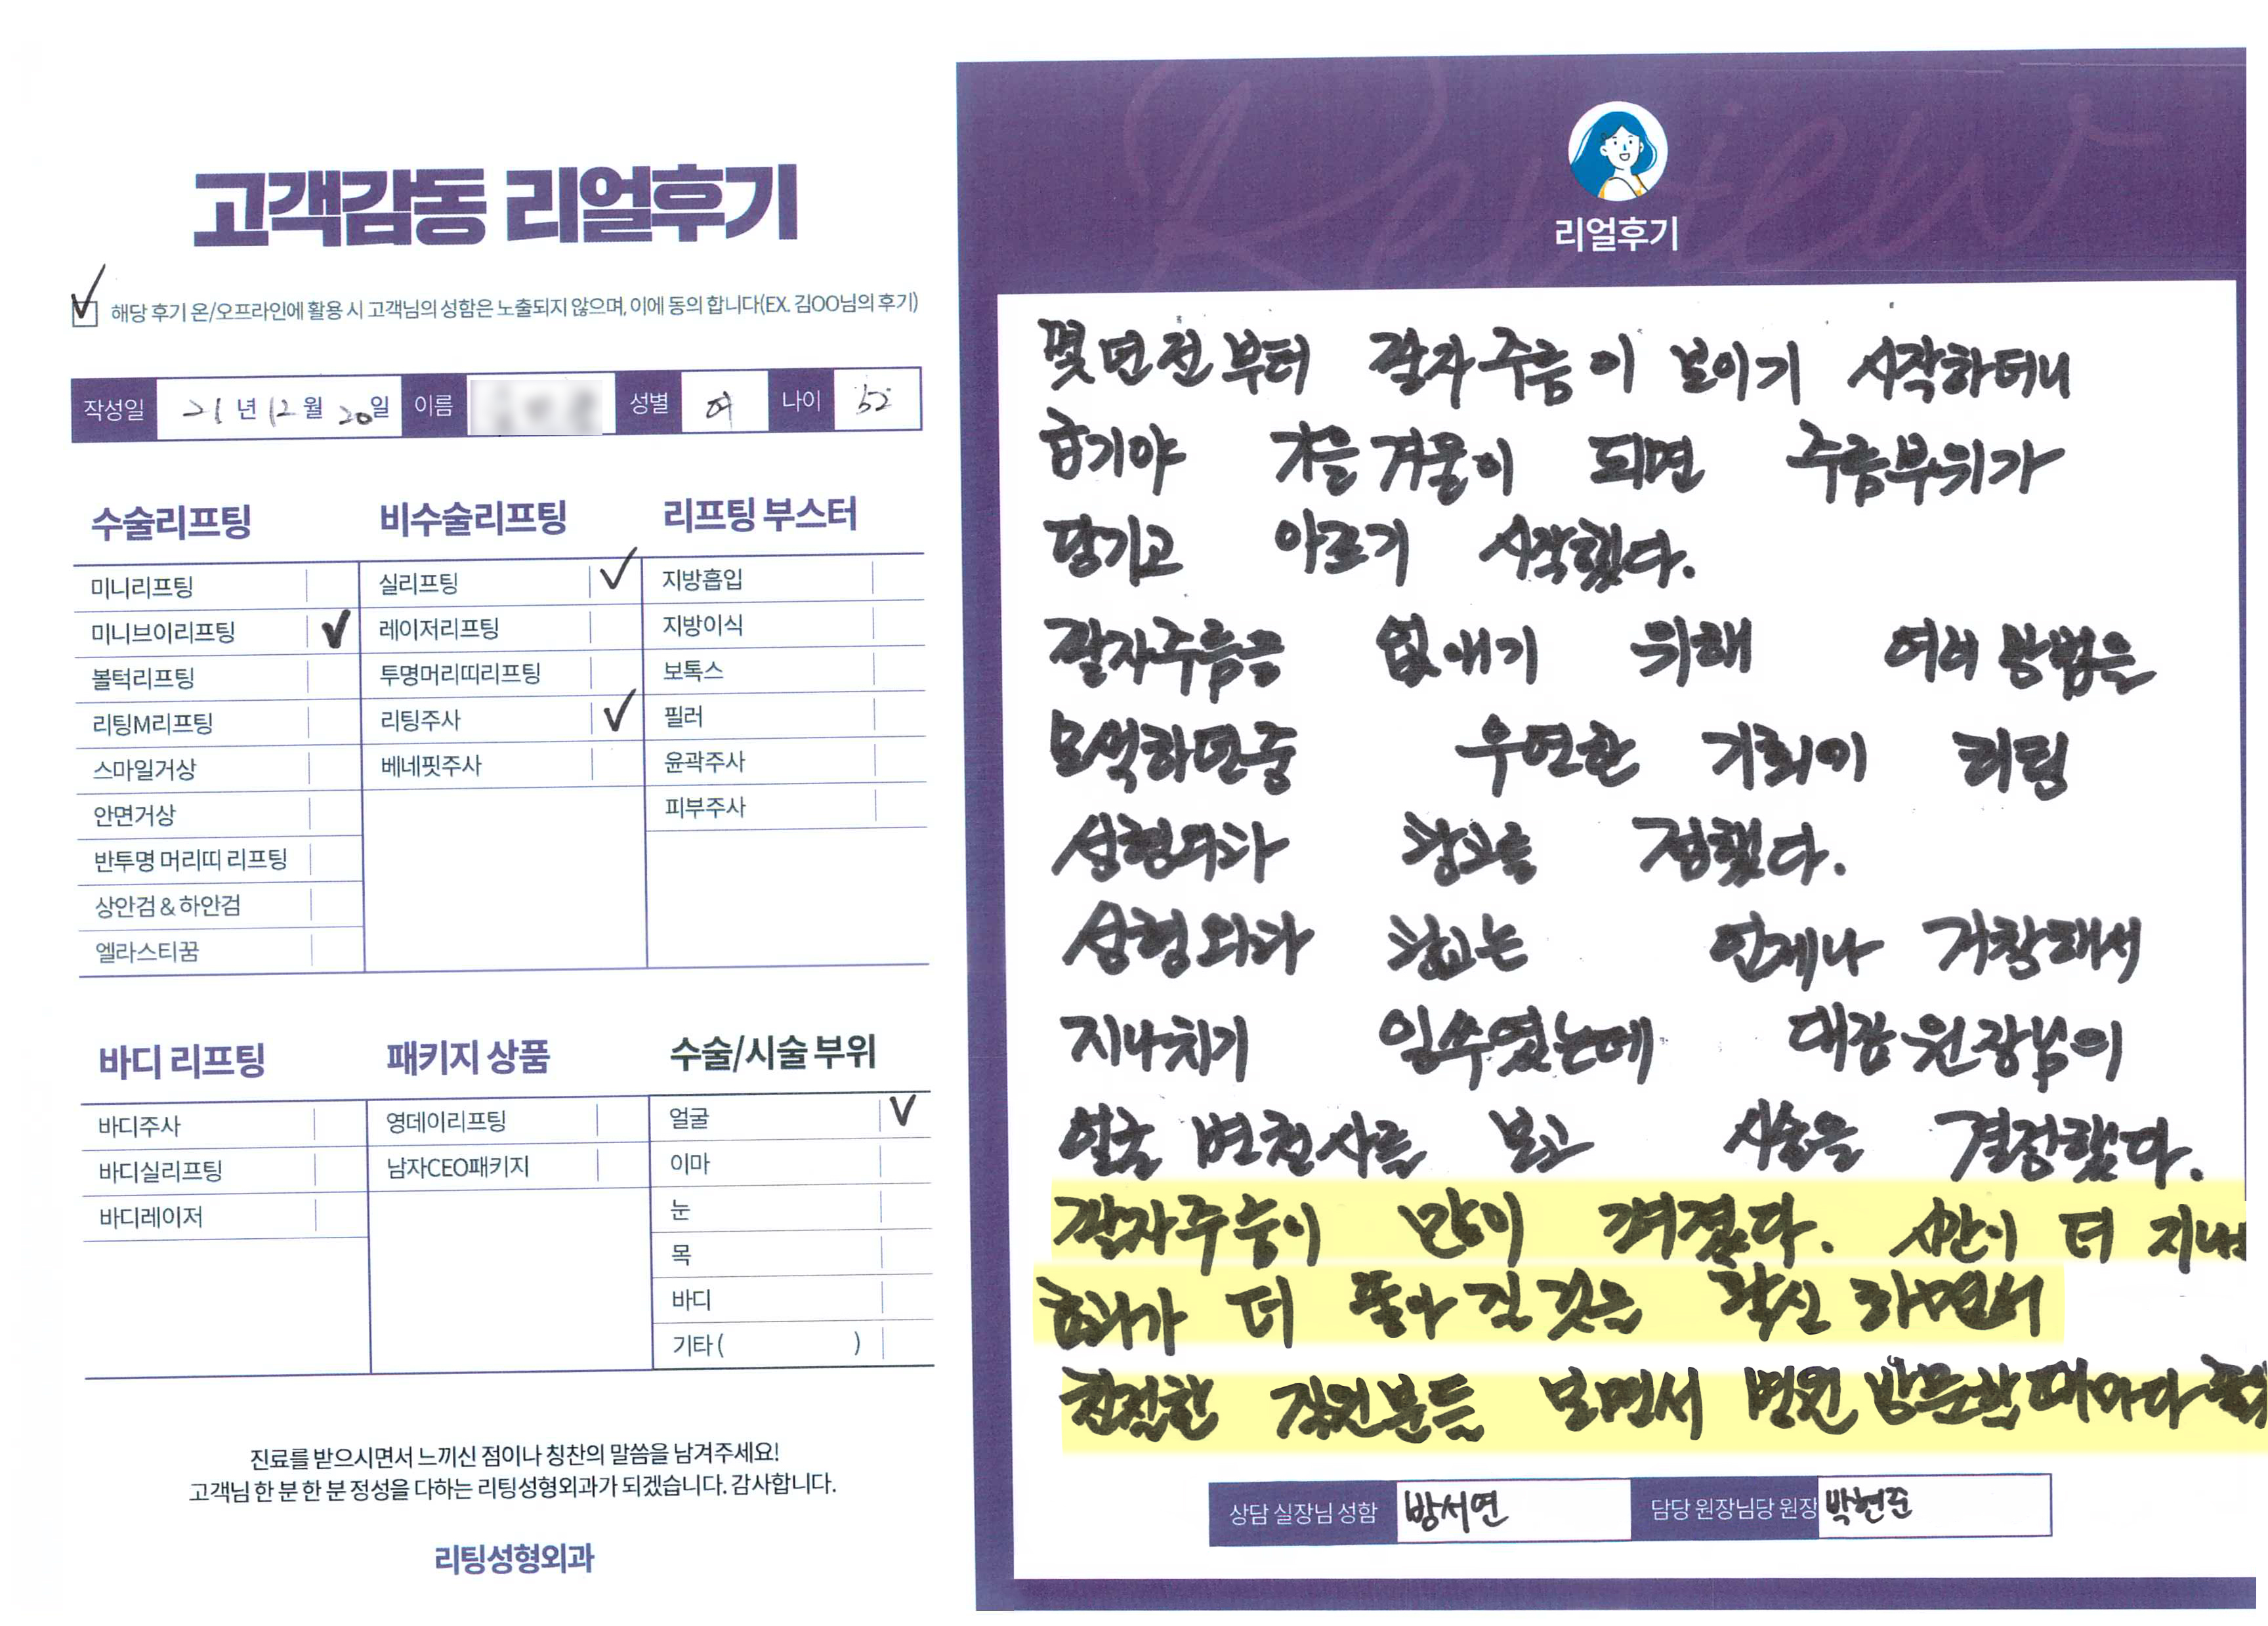 고객감동 리얼후기
해당 후기 온/오프라인에 활용 시 고객님의 성함은 노출되지 않으며, 이에 동의 합니다(EX. 김OO님의 후기)
작성일 21년 12월 20일 이름 성별 여 나이 52
수술리프팅
미니리프팅
미니브이리프팅
볼턱리프팅
리팅M리프팅
스마일거상
안면거상
반투명 머리띠 리프팅
상안검 & 하안검
엘라스티꿈
비수술리프팅
실리프팅
레이저리프팅
투명머리띠리프팅
리팅주사
베네핏주사
리프팅 부스터
지방흡입
지방이식
보톡스
필러
윤곽주사
피부주사
바디 리프팅
바디주사
바디실리프팅
바디레이저
패키지 상품
영데이리프팅
남자CEO패키지
수술/시술 부위
얼굴
이마
눈
목
바디
기타 ( )
진료를 받으시면서 느끼신 점이나 칭찬의 말씀을 남겨주세요!
고객님 한 분 한 분 정성을 다하는 리팅성형외과가 되겠습니다. 감사합니다.
리팅성형외과
Review
리얼후기
몇 년 전부터 팔자주름이 보이기 시작하더니
급기야 가을 겨울이 되면 주름부위가
당기고 아프기 시작했다.
팔자주름을 없애기 위해 여러 방법을
모색하던중 우연한 기회에 리팅
성형외과 광고를 접했다.
성형외과 광고는 언제나 거창해서
지나치기 일쑤였는데 대표원장님의
얼굴 변천사를 보고 시술을 결정했다.
팔자주름이 많이 펴졌다. 시간이 더 지나
효과가 더 좋아 질 것을 확신 하면서
친절한 직원분들 보면서 병원 방문할때마다
상담 실장님 성함 방서연
담당 원장님당 원장 박현준